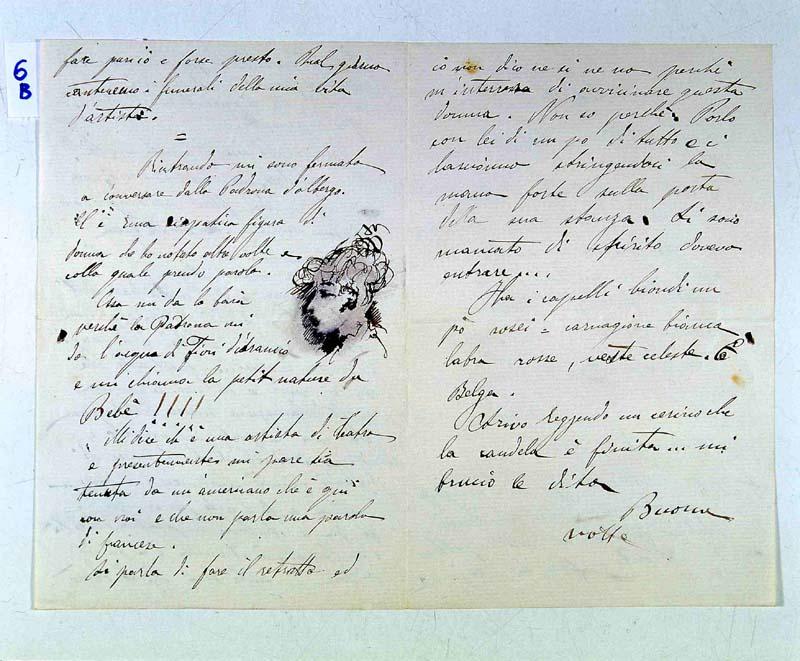 6
B
fare parciò e forse presto. Qual giorno
canteremo i funerali della mia vita
d'artista.
=
Rientrando mi sono fermato
a conversare dalla Padrona d'albergo.
C'è una simpatica figura di
donna che ho notato altre volte e
colla quale prendo parola.
Essa mi da la baia
perchè la Padrona mi
da l'acqua di Fiori d'arancio
e mi chiama la petit nature du
Bebè !!!!
Mi dice ch'è una artista di Teatro
e presentemente mi pare sia
tenuta da un americano che è qui
con noi e che non parla una parola
di francese.
Si parla di fare il ritratto ed
io non dico ne si ne no perchè
m'interessa di avvicinare questa
donna. Non so perchè. Parlo
con lei di un po di tutto e ci
lasciamo stringendoci la
mano forte sulla porta
della sua stanza. Si sono
mancato di spirito dovevo
entrare....
Ha i capelli biondi un
pò rosei = carnagione bianca
labra rosse, veste celeste. È
Belga.
Scrivo reggendo un cerino che
la candela è finita... mi
brucio le dita
Buona
notte